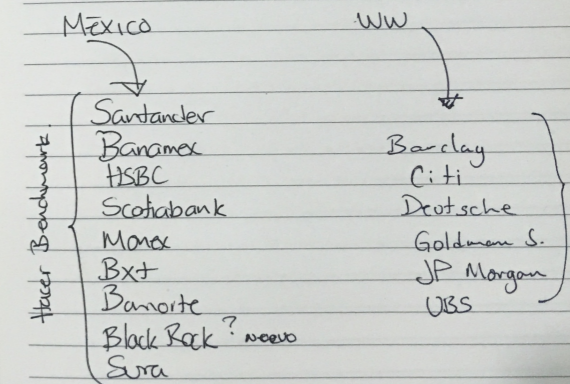 MÉXICO
WW
Hacer Benchmark.
Santander
Banamex
HSBC
Scotiabank
Monex
Bx+
Banorte
Black Rock ? nuevo
Sura
Barclay
Citi
Deutsche
Goldman S.
JP Morgan
UBS